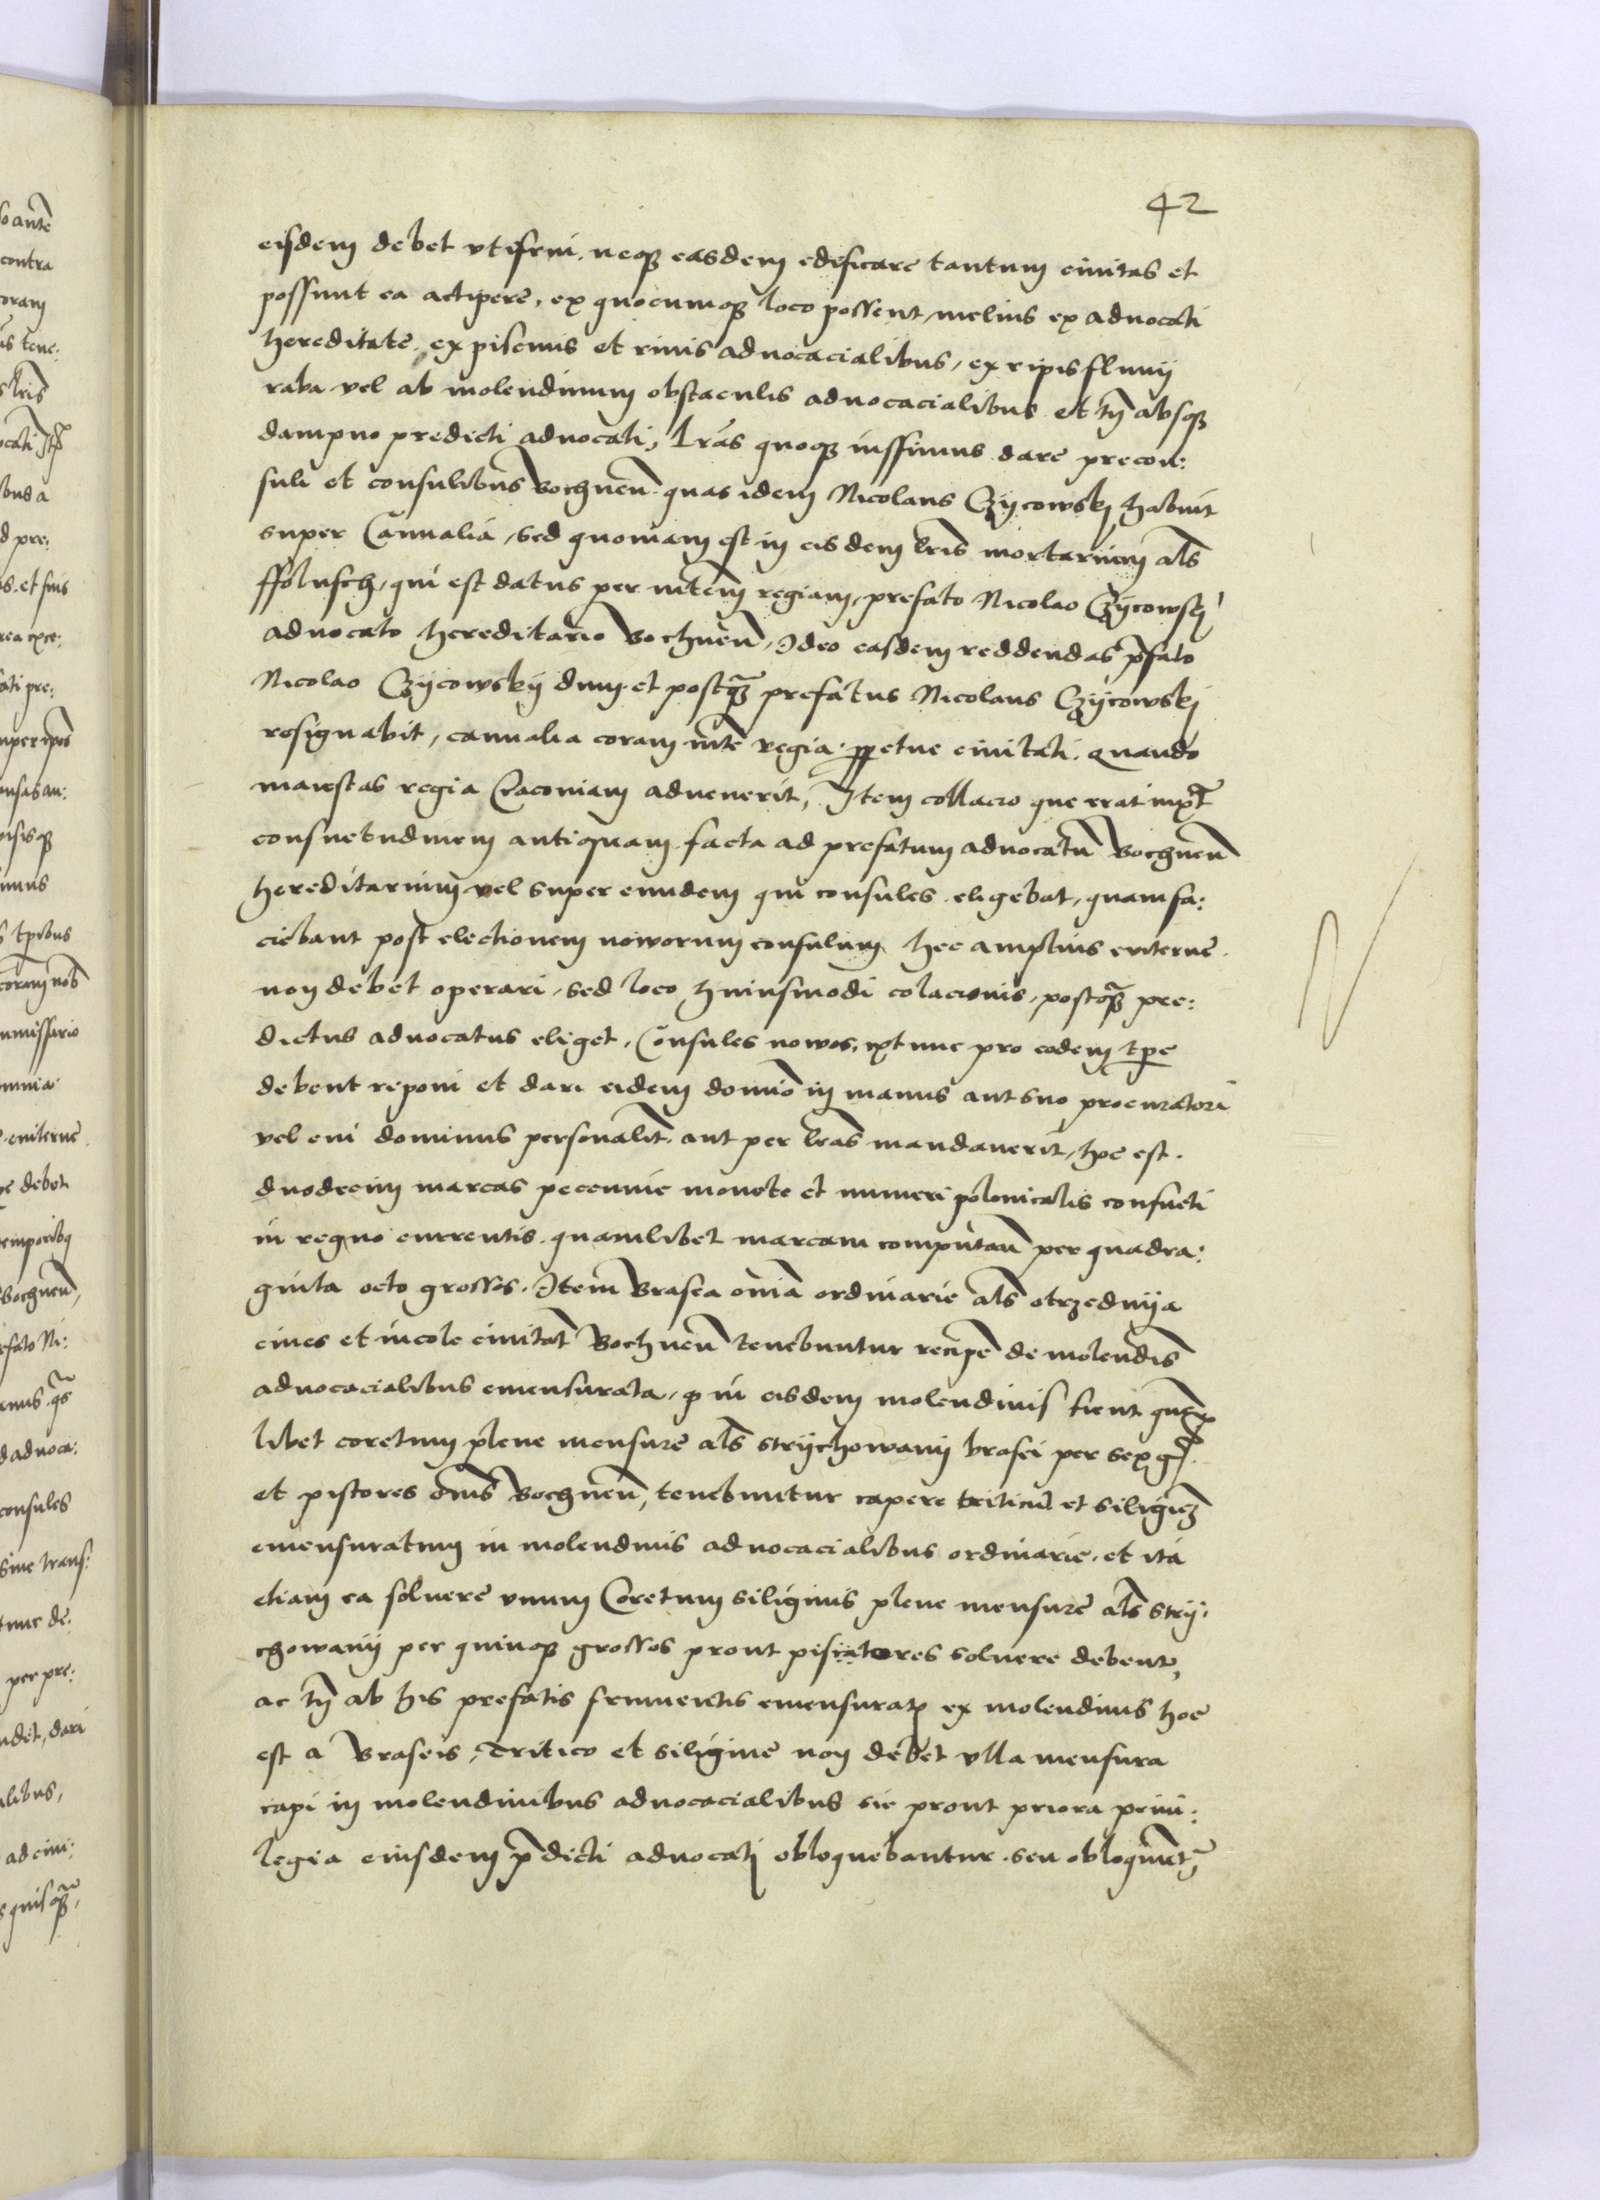 42
eisdem debet utifrui. neqȝ easdem edificare tantum civitas et
possunt ea accipere, ex quocumqȝ loco possent melius ex advocati
hereditate, ex piscinis et rivis advocacialibus, ex ripis fluvij
raba vel ab molendinum obstaculis advocacialibus et tn̄ absqȝ
dampno predicti advocati, Lr̄as quoqȝ iussimus dare precon:
suli et consulibus Bochnen̄. quas idem Nicolaus Czÿcowskj habuit
super Cannalia, sed quoniam est in eisdem lr̄is mortarium al̄s
ffolusch, qui est datus per mtēm regiam, prefato Nicolao Czÿcowskj
advocato hereditario Bochnen̄, Ideo easdem reddendas p̄fato
Nicolao Czÿcowskÿ dum et postqȝ prefatus Nicolaus Czÿcowskj
resignabit, cannalia coram mtē regia ꝑpetue civitati. quando
maiestas regia Craconiam advenerit, Item collacio que erat iuxt̄
consuetudinem antiquam facta ad prefatum advocatū Bochnen̄
hereditarium vel super eundem qui consules eligebat, quam fa:
ciebant post electionem noworum consulum hec amplius eviterne
non debet operari, sed loco huiusmodi colacionis, postqȝ pre:
dictus advocatus eliget, Consules nowos, extunc pro eodem tp̄e
debent reponi et dari eidem domio in manus aut suo procuratori
vel cui dominus personalit̄. aut per lr̄as mandaverit, hoc est.
duodecim marcas peccunie monete et numeri polonicalis consueti
in regno currentis. quamlibet marcam computan̄ per quadra:
ginta octo grossos. Item Brasea om̄ia ordinarie al̄s otrzednÿa
cives et incole civitat̄ Bochnen̄ tenebuntur recipe de molendis̄
advocacialibus emensurata, q in eisdem molendinis fient
libet coretum plene mensure al̄s strÿchowanÿ brasei per sex ḡ.
et pistores om̄s Bochnen̄, tenebuntur capere triticū et siliginȝ
emensuratum in molendinis advocacialibus ordinarie. et ita
etiam ea solvere unum Coretum siliginis plene mensure al̄s strÿ:
chowanÿ per quinqȝ grossos prout piscatores solvere debent,
ac tn̄ ab his prefatis frumentis emensurat ex molendinis hoc
est a Braseis, Tritico et siligine non debet ulla mensura
capi in molendinibus advocacialibus sic prout priora privi:
legia eiusdem p̄dicti advocatj obloquebantur. seu obloquunt̄